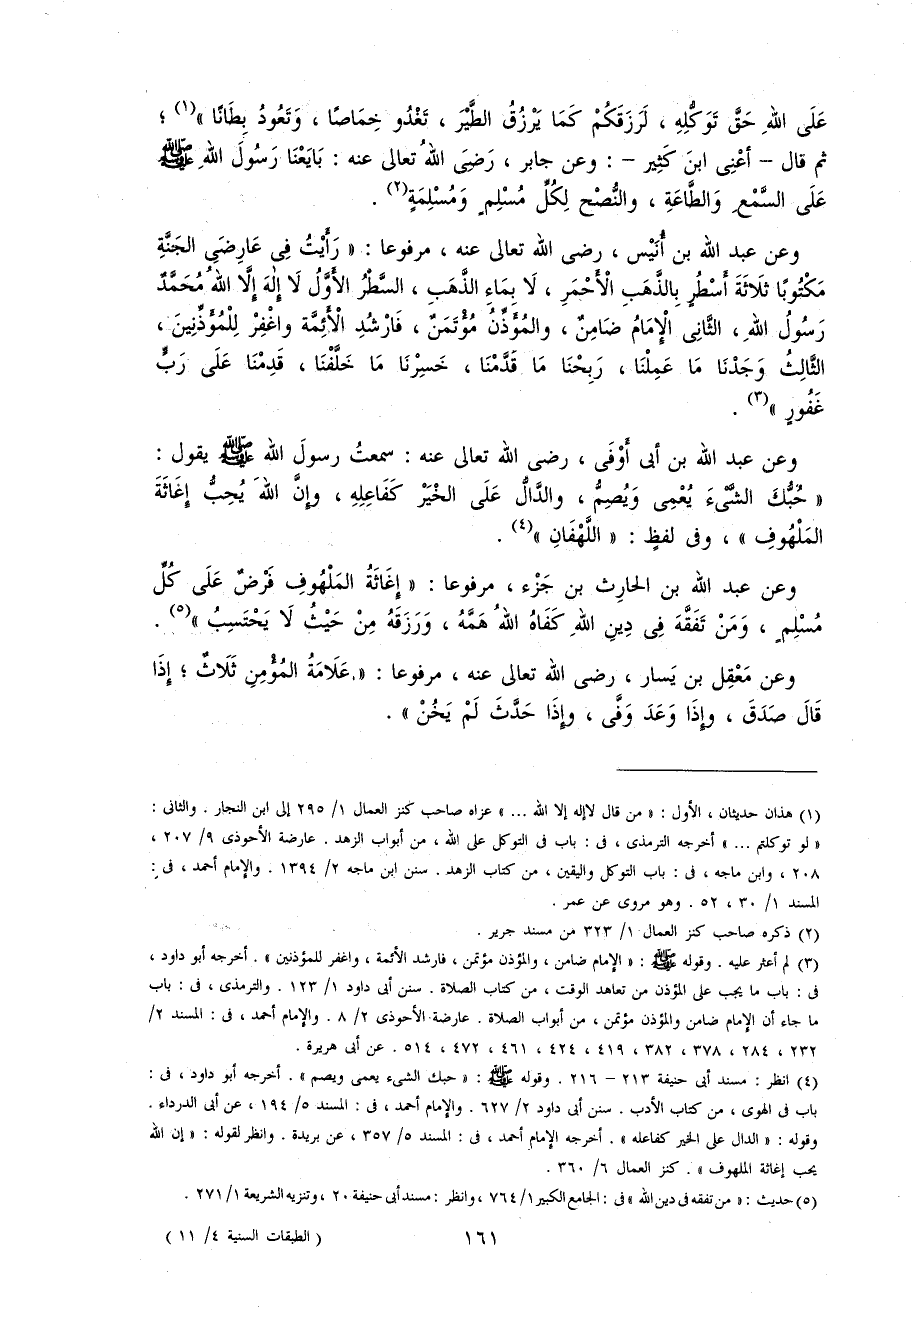 عَلَى اللهِ حَقَّ تَوَكُّلِهِ ، لَرَزَقَكُمْ كَمَا يَرْزُقُ الطَّيْرَ ، تَغْدُو خِمَاصًا ، وَتَعُودُ بِطَانًا »(١) ؛
ثم قال – أعْنِى ابنَ كَثِير – : وعن جابر ، رَضِىَ اللهُ تعالى عنه : بَايَعْنَا رَسُولَ اللهِ ﷺ
عَلَى السَّمْعِ وَالطَّاعَةِ ، والنُّصْحِ لِكُلِّ مُسْلِمٍ وَمُسْلِمَةٍ(٢) .
وعن عبد الله بن أُنَيْس ، رضى الله تعالى عنه ، مرفوعا : « رَأَيْتُ فِى عَارِضَىِ الجَنَّةِ
مَكْتُوبًا ثَلَاثَةَ أَسْطُرٍ بِالذَّهَبِ الْأَحْمَرِ ، لَا بِمَاءِ الذَّهَبِ ، السَّطْرُ الأَوَّلُ لَا إِلٰهَ إِلَّا اللهُ مُحَمَّدٌ
رَسُولُ اللهِ ، الثَّانِى الْإِمَامُ ضَامِنٌ ، والمُؤَذِّنُ مُؤْتَمَنٌ ، فَارْشُدِ الْأَئِمَّةَ واغْفِرْ لِلْمُؤَذِّنِينَ ،
الثَّالِثُ وَجَدْنَا مَا عَمِلْنَا ، رَبِحْنَا مَا قَدَّمْنَا ، خَسِرْنَا مَا خَلَّفْنَا ، قَدِمْنَا عَلَى رَبٍّ
غَفُورٍ »(٣) .
وعن عبد الله بن أبى أَوْفَى ، رضى الله تعالى عنه : سمعتُ رسولَ الله ﷺ يقول :
« حُبُّكَ الشَّىْءَ يُعْمِى وَيُصِمُّ ، والدَّالُّ عَلَى الخَيْرِ كَفَاعِلِهِ ، وإِنَّ اللهَ يُحِبُّ إِغَاثَةَ
المَلْهُوفِ » ، وفى لفظٍ : « اللَّهْفَانِ »(٤) .
وعن عبد الله بن الحارِث بن جَزْء ، مرفوعا : « إِغَاثَةُ المَلْهُوفِ فَرْضٌ عَلَى كُلِّ
مُسْلِمٍ ، وَمَنْ تَفَقَّهَ فِى دِينِ اللهِ كَفَاهُ اللهُ هَمَّهُ ، وَرَزَقَهُ مِنْ حَيْثُ لَا يَحْتَسِبُ »(٥) .
وعن مَعْقِل بن يَسار ، رضى الله تعالى عنه ، مرفوعا : « عَلَامَةُ المُؤْمِنِ ثَلَاثٌ ؛ إِذَا
قَالَ صَدَقَ ، وإِذَا وَعَدَ وَفَّى ، وإِذَا حَدَّثَ لَمْ يَخُنْ » .
(١) هذان حديثان ، الأول : « من قال لاإله إلا الله ... » عزاه صاحب كنز العمال ١/ ٢٩٥ إلى ابن النجار . والثانى :
« لو توكلتم ... » أخرجه الترمذى ، فى : باب فى التوكل على الله ، من أبواب الزهد . عارضة الأحوذى ٩/ ٢٠٧ ،
٢٠٨ ، وابن ماجه ، فى : باب التوكل واليقين ، من كتاب الزهد . سنن ابن ماجه ٢/ ١٣٩٤ . والإمام أحمد ، فى :
المسند ١/ ٣٠ ، ٥٢ . وهو مروى عن عمر .
(٢) ذكره صاحب كنز العمال ١/ ٣٢٣ من مسند جرير .
(٣) لم أعثر عليه . وقوله ﷺ : « الإمام ضامن ، والمؤذن مؤتمن ، فارشد الأئمة ، واغفر للمؤذنين » . أخرجه أبو داود ،
فى : باب ما يجب على المؤذن من تعاهد الوقت ، من كتاب الصلاة . سنن أبى داود ١/ ١٢٣ . والترمذى ، فى : باب
ما جاء أن الإمام ضامن والمؤذن مؤتمن ، من أبواب الصلاة . عارضة الأحوذى ٢/ ٨ . والإمام أحمد ، فى : المسند ٢/
٢٣٢ ، ٢٨٤ ، ٣٧٨ ، ٣٨٢ ، ٤١٩ ، ٤٢٤ ، ٤٦١ ، ٤٧٢ ، ٥١٤ . عن أبى هريرة .
(٤) انظر : مسند أبى حنيفة ٢١٣ – ٢١٦ . وقوله ﷺ : « حبك الشىء يعمى ويصم » . أخرجه أبو داود ، فى :
باب فى الهوى ، من كتاب الأدب . سنن أبى داود ٢/ ٦٢٧ . والإمام أحمد ، فى : المسند ٥/ ١٩٤ ، عن أبى الدرداء .
وقوله : « الدال على الخير كفاعله » . أخرجه الإمام أحمد ، فى : المسند ٥/ ٣٥٧ ، عن بريدة . وانظر لقوله : « إن الله
يحب إغاثة الملهوف » . كنز العمال ٦/ ٣٦٠ .
(٥) حديث : « من تفقه فى دين الله » فى : الجامع الكبير ١/ ٧٦٤ ، وانظر : مسند أبى حنيفة ٢٠ ، وتنزيه الشريعة ١/ ٢٧١ .
١٦١
( الطبقات السنية ٤/ ١١ )